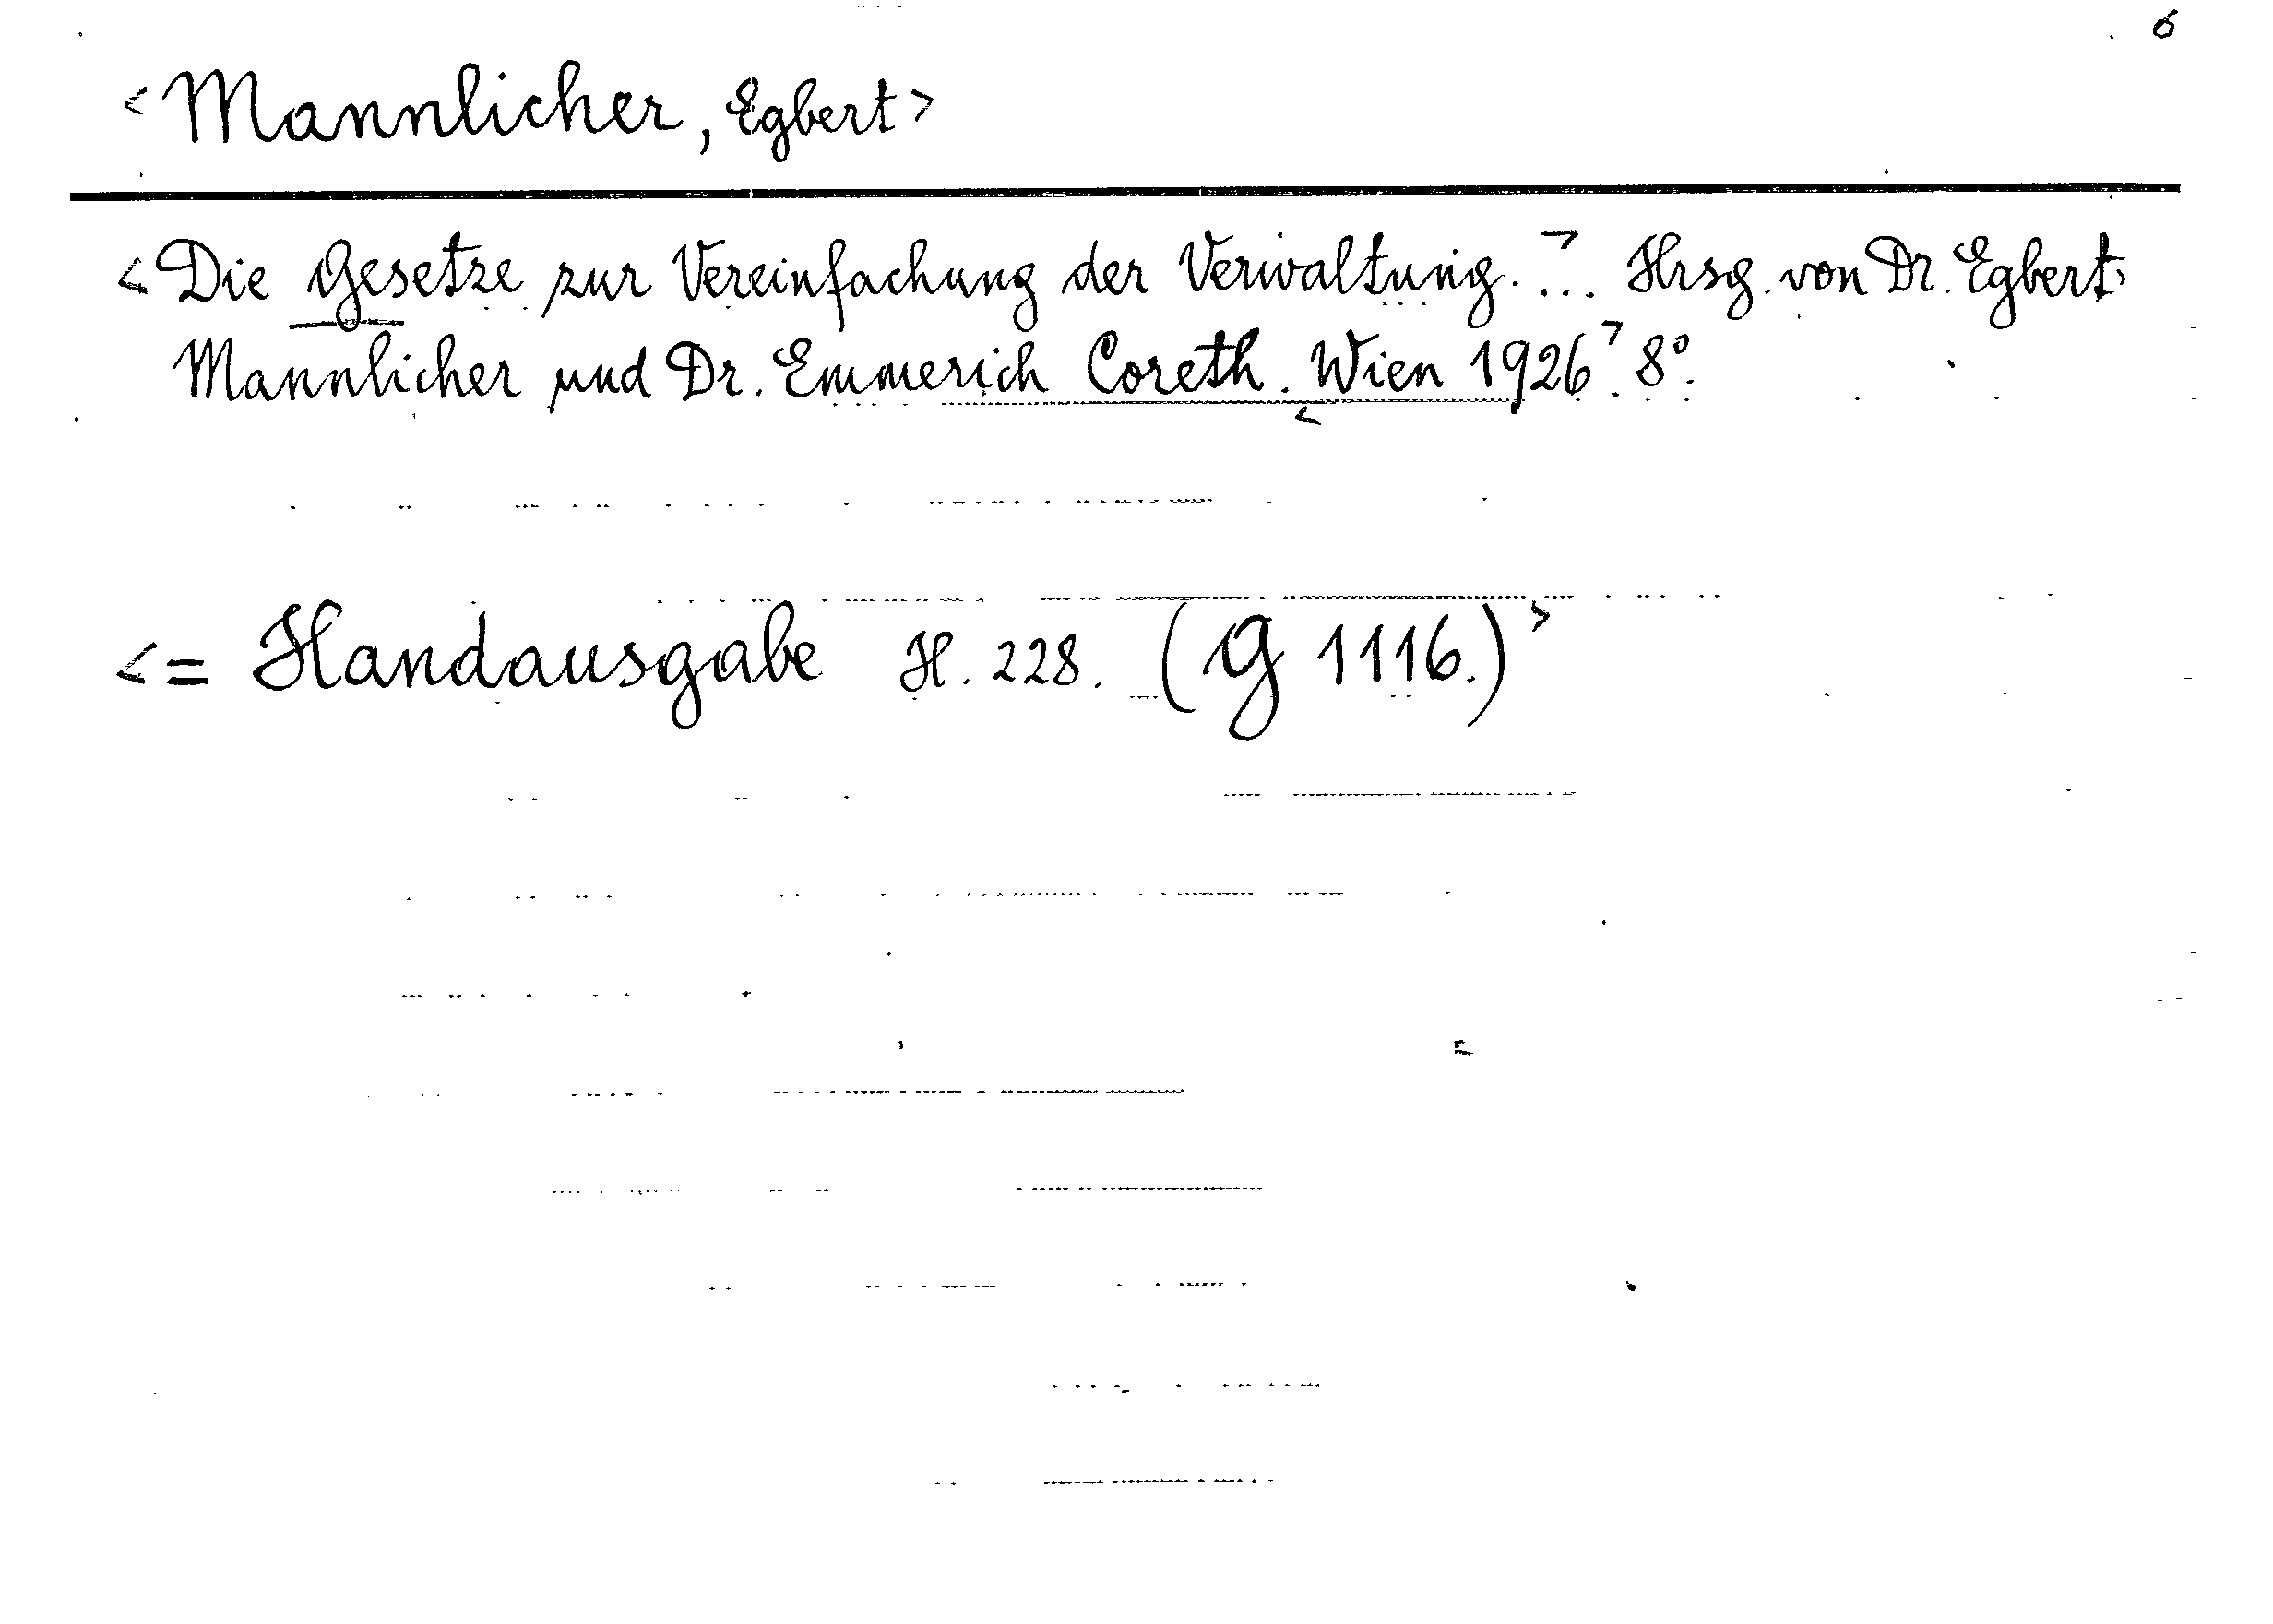 6
<Mannlicher, Egbert>
<Die Gesetze zur Vereinfachung der Verwaltung. ...> Hrsg. von Dr. Egbert
Mannlicher und Dr. Emmerich Coreth. <Wien 1926>. 8°.
<= Handausgabe H. 228. (G 1116.)>